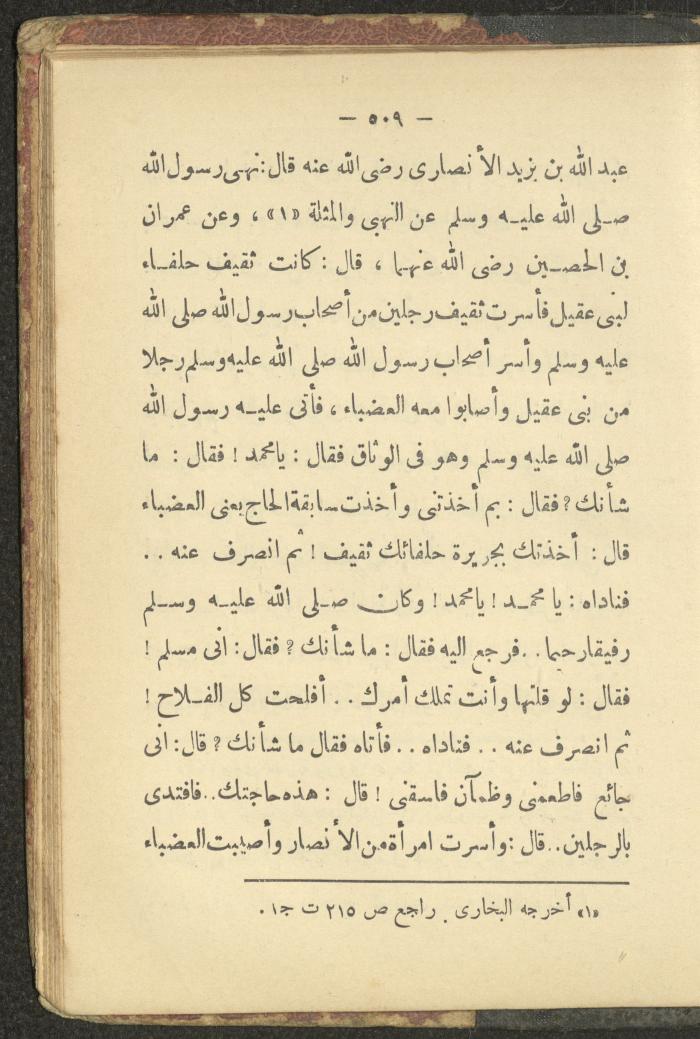 — ٥٠٩ —
عبد الله بن يزيد الأنصارى رضى الله عنه قال: نهى رسول الله
صلى الله عليه وسلم عن النهبى والمثلة «١» ، وعن عمران
بن الحصين رضى الله عنهما ، قال : كانت ثقيف حلفاء
لبنى عقيل فأسرت ثقيف رجلين من أصحاب رسول الله صلى الله
عليه وسلم وأسر أصحاب رسول الله صلى الله عليه وسلم رجلا
من بنى عقيل وأصابوا معه العضباء ، فأتى عليه رسول الله
صلى الله عليه وسلم وهو فى الوثاق فقال : يامحمد ! فقال : ما
شأنك ? فقال : بم أخذتنى وأخذت سابقة الحاج يعنى العضباء
قال : أخذتك بجريرة حلفائك ثقيف ! ثم انصرف عنه . .
فناداه : يا محمد ! يامحمد ! وكان صلى الله عليه وسلم
رفيقا رحيما . . فرجع اليه فقال : ما شأنك ? فقال : انى مسلم !
فقال : لو قلتها وأنت تملك أمرك . . أفلحت كل الفلاح !
ثم انصرف عنه . . فناداه . . فأتاه فقال ما شأنك ? قال : انى
جائع فاطعمنى وظمآن فاسقنى ! قال : هذه حاجتك . . فافتدى
بالرجلين . . قال : وأسرت امرأة من الأنصار وأصيبت العضباء
«١» أخرجه البخارى . راجع ص ٢١٥ ت ج١ .